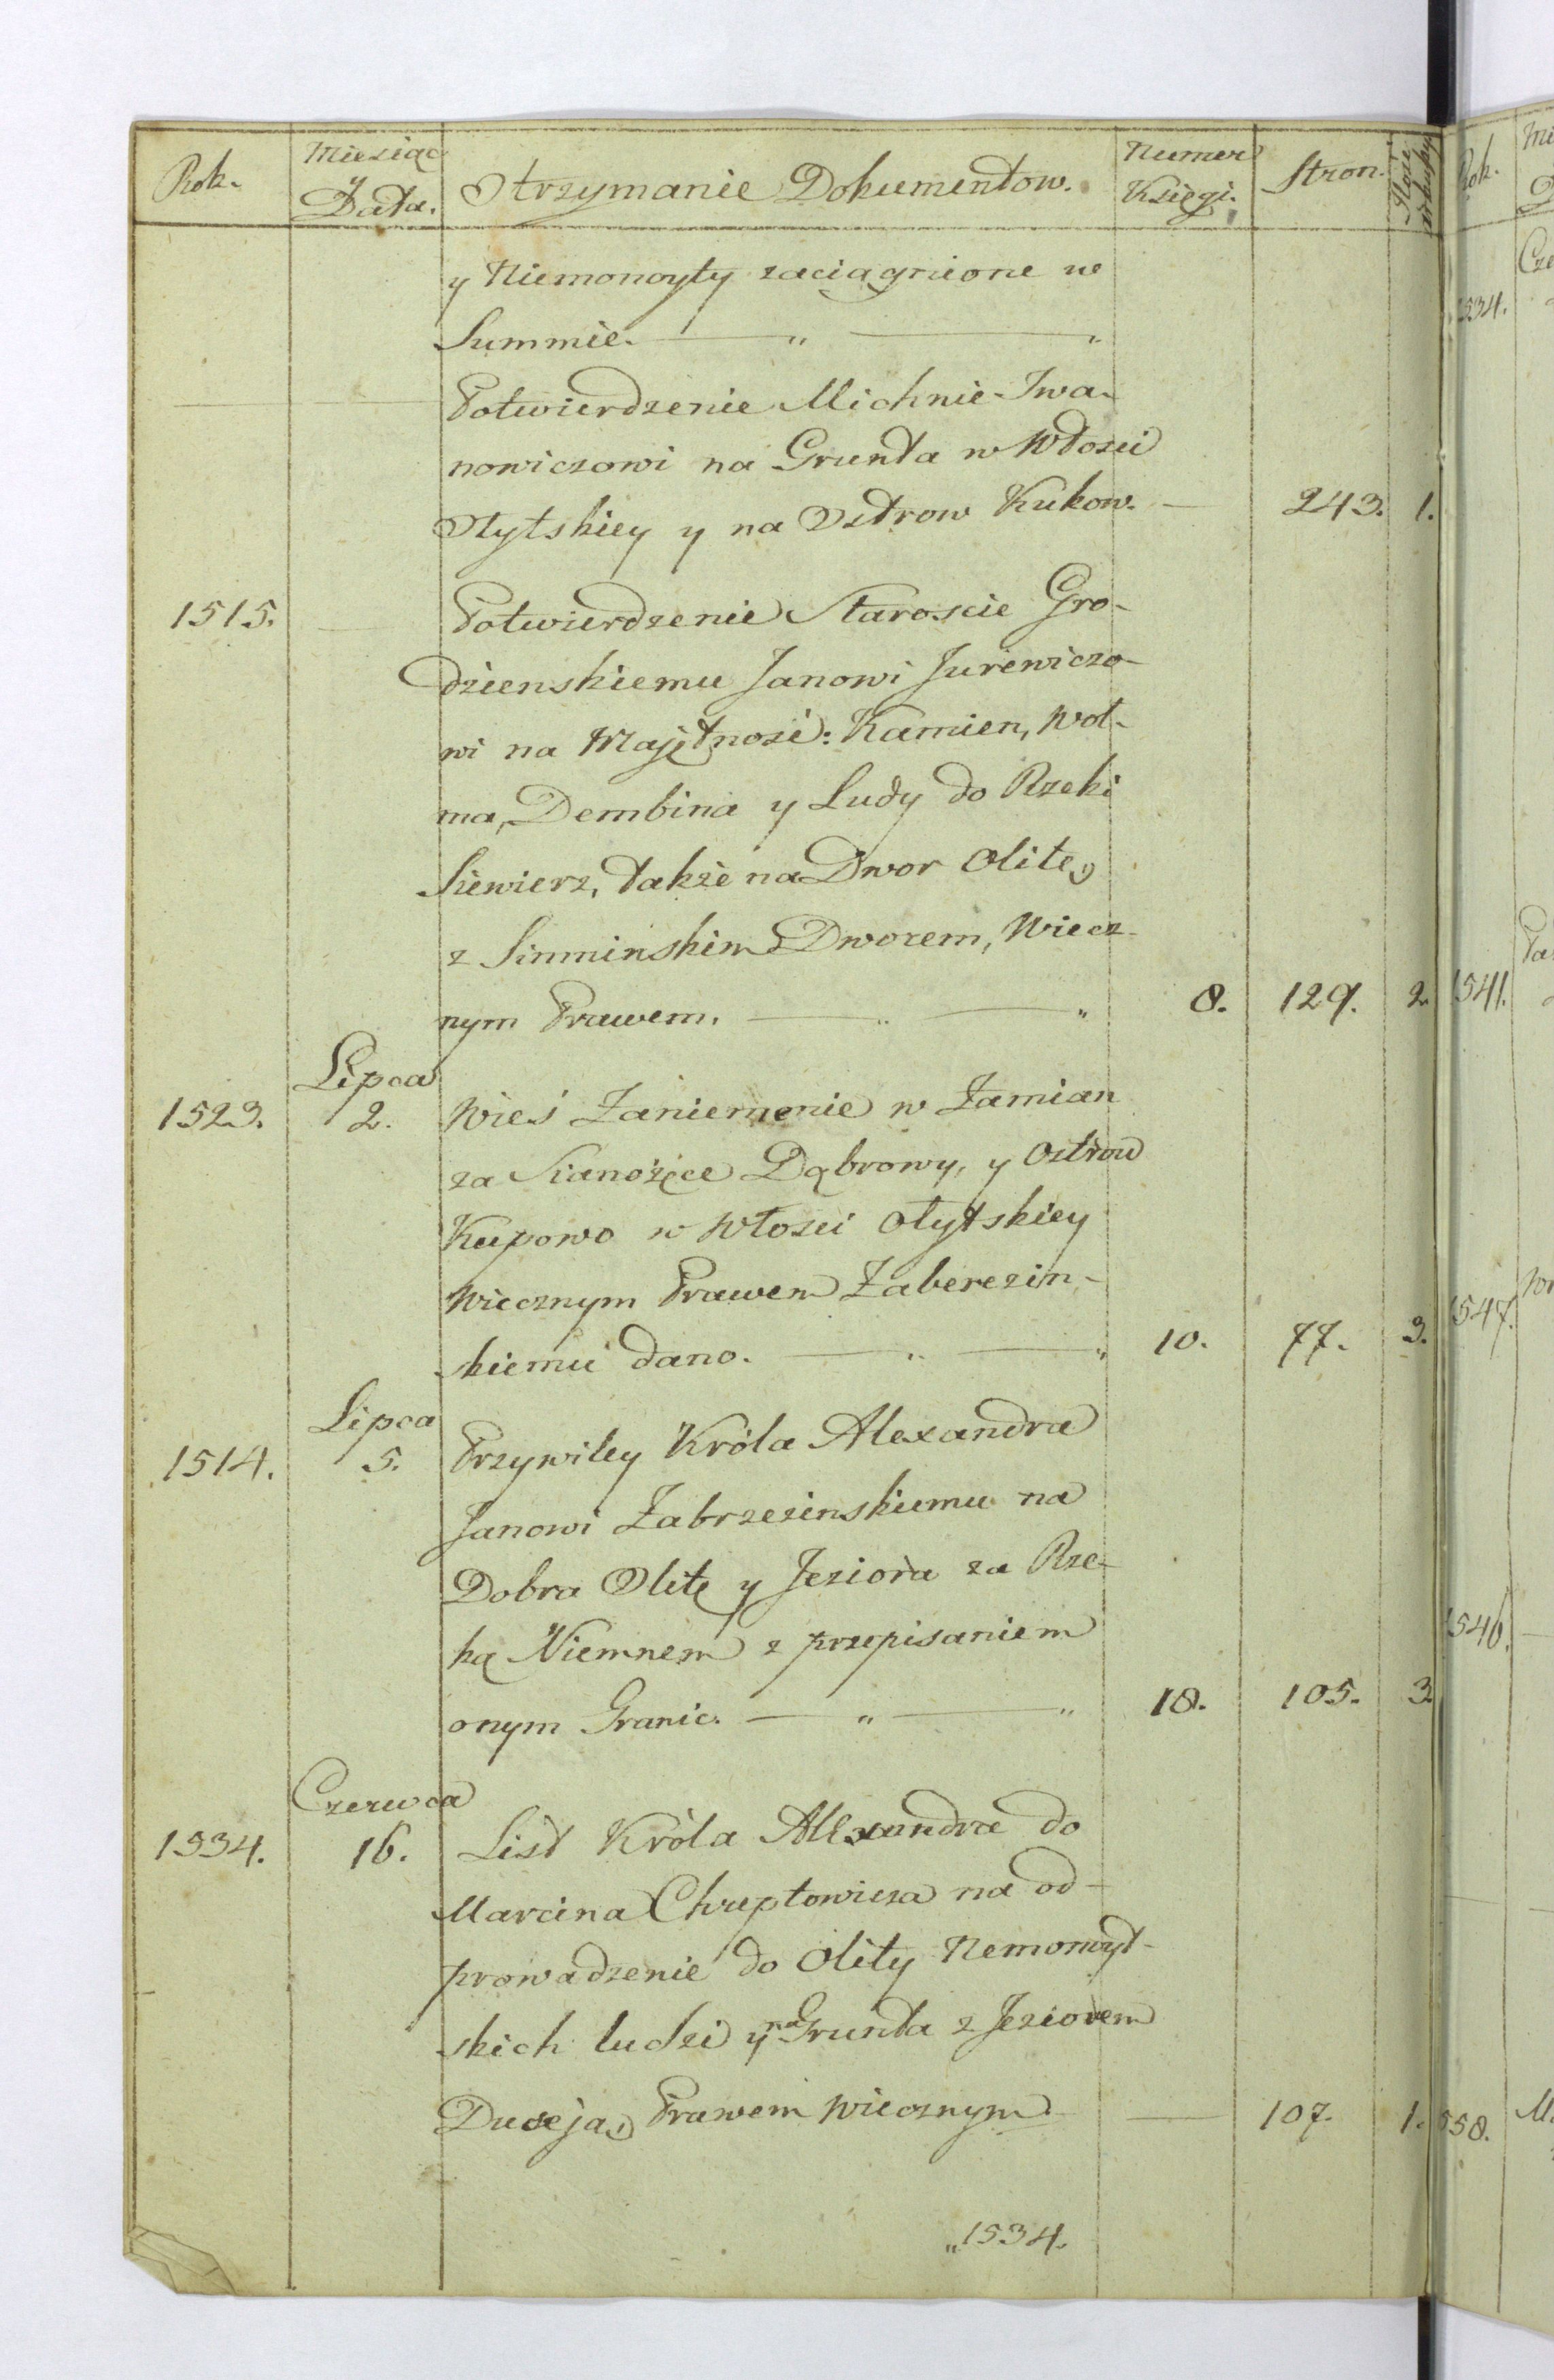 Rok. Miesiąc y Data. Otrzymanie Dokumentow. Numer Księgi. Stron. Ilość arkuszy
y Niemonoyty zaciągnione we
Summie. — „ — „
— — Potwierdzenie Michnie Iwa-
nowiczowi na Grunta w Włości
Olytskiey y na Ostrow Kukow. — 243. 1.
1515. — Potwierdzenie Staroscie Gro-
dzienskiemu Janowi Jurewiczo-
wi na Majętność: Kamien, Woł-
ma, Dembina y Ludy do Rzeki
Siewierz, także na Dwor Olitę,
z Simninskim Dworem, Wiecz-
nym Prawem. — „ — „ 8. 129. 2.
Lipca
1523. 2. Wieś Zaniemenie w Zamian
za Sianożęce Dąbrowy, y Ostrow
Kupowo w Włości Olytskiey
Wiecznym Prawem Zaberezin-
skiemu dano. — „ — „ 10. 77. 3.
Lipca
1514. 5. Przywiley Króla Alexandra
Janowi Zabrzezinskiemu na
Dobra Olitę y Jeziora za Rze-
ką Niemnem z przepisaniem
onym Granic. — „ — „ 18. 105. 3
Czerwca
1534. 16. List Króla Alexandra do
Marcina Chreptowicza na od-
prowadzenie do Olity Nemonoyt-
skich ludzi y na Grunta z Jeziorem
Duseja, Prawem Wiecznym — 107. 1.
„1534.
Rok.
1534.
1541.
1547.
1546.
558.